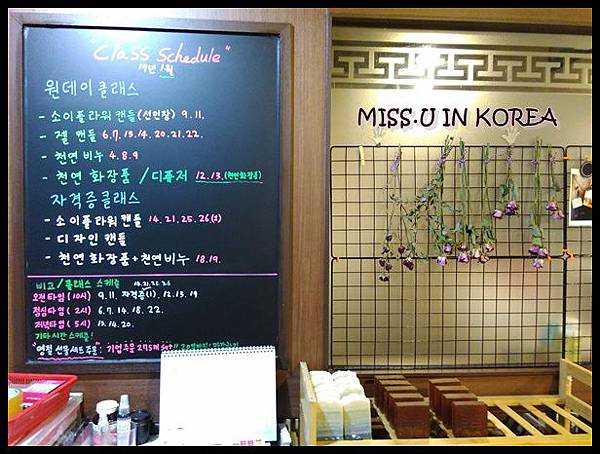 "Class Schedule"
19년 1월
원데이 클래스
- 소이플라워 캔들(선인장) 9.11.
- 젤 캔들 6.7.13.14.20.21.22.
- 천연 비누 4.8.9
- 천연 화장품 / 디퓨저 12.13.(천연화장품)
자격증클래스
- 소이플라워캔들 14.21.25.26(토)
- 디자인 캔들
- 천연 화장품+천연비누 18.19.
비고/클래스 스케줄
오전타임(10시) 9.11. 자격증(1). 12.13.19
점심타임(2시) 6.7.14.18.22.
저녁타임(5시) 13.14.20.
기타시간 스케줄!
"명절 선물세트 주문": 기업주문
MISS.U IN KOREA